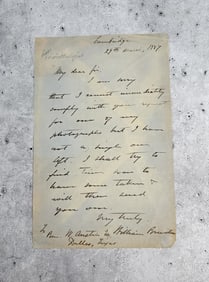 Cambridge
29th 1887
My dear Sir,
I am sorry
that I cannot immediately
comply with your request
for one of my
photographs but I have
not a single one
left. I shall try to
find time now to
have some taken &
will then send
you one.
Very truly
To W. Austin William
Dallas, Texas